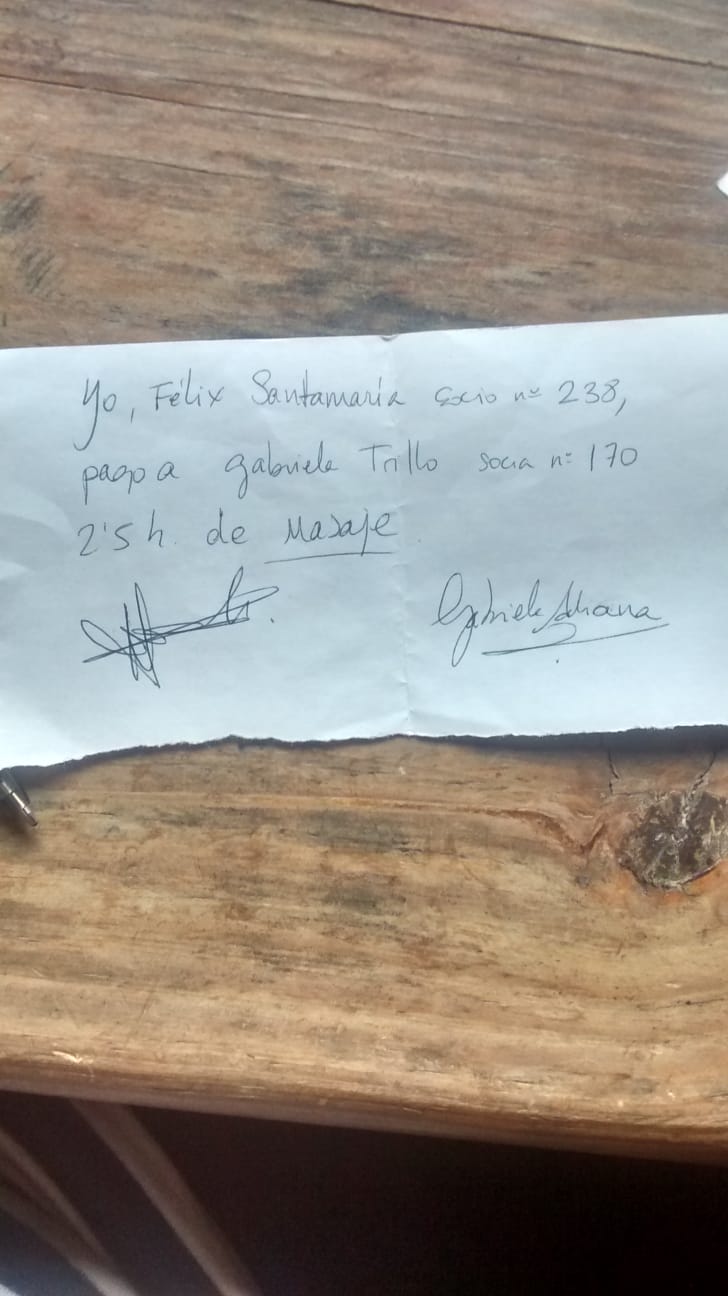 Yo, Félix Santamaría socio nº 238,
pago a Gabriela Trillo socia nº 170
2'5 h. de Masaje.
Gabriela